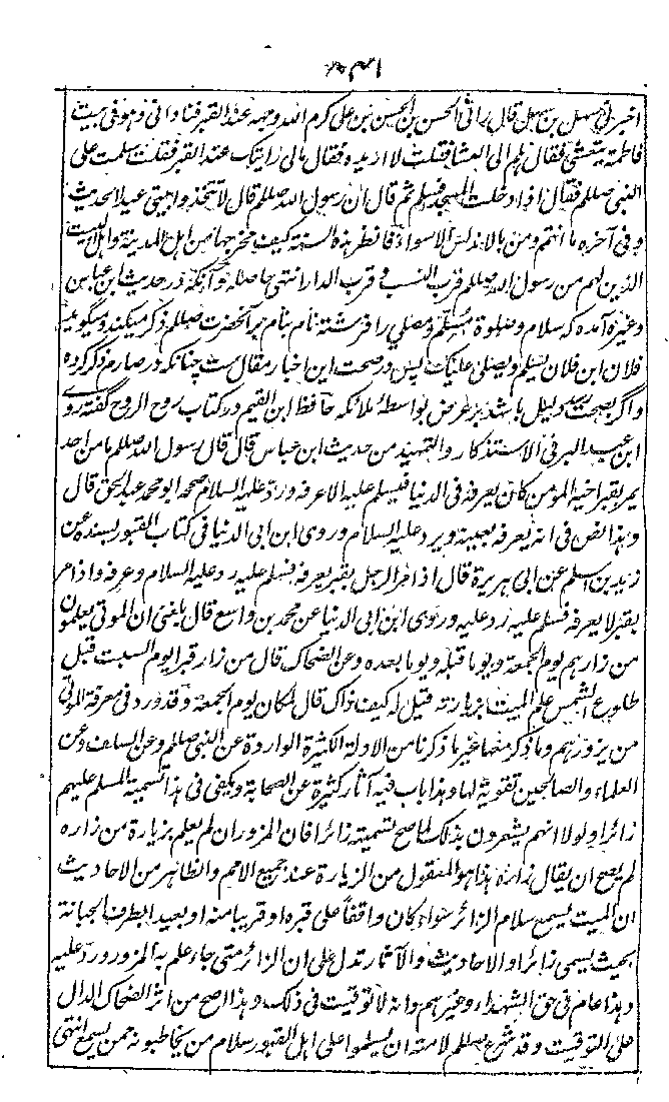 اخبرنی سهیل بن سهیل قال رانی الحسن بن الحسن بن علی کرم الله وجهه عند القبر فنادانی وهو فی بیت
فاطمة یتعشی فقال هلم الی العشا فقلت لا اریده فقال مالی رایتک عند القبر فقلت سلمت علی
النبی صللم فقال اذا دخلت المسجد فسلم ثم قال ان رسول الله صللم قال لا تتخذوا بیتی عیدا لحدیث
وفی آخره ما انتم ومن بالاندلس الا سواء فانظر هذه السنة کیف مخرجها من اهل المدینة واهل البیت
الذین لهم من رسول الله صللم قرب النسب و قرب الدار انتهی حاصله و آنکه در حدیث ابن عباس
وغیره آمده که سلام و صلوة مسلم و مصلی را فرشته نام بنام بر آنحضرت صللم ذکر میکند و میگوید
فلان ابن فلان یسلم ویصلی علیک پس در صحت این اخبار مقال ست چنانکه در صارم ذکر کرده
واگر بصحت رسد دلیل باشد بر عرض بواسطهٔ ملائکه حافظ ابن القیم در کتاب روح الروح گفته روی
ابن عبد البر فی الاستذکار والتمهید من حدیث ابن عباس قال قال رسول الله صللم ما من احد
یمر بقبر اخیه المؤمن کان یعرفه فی الدنیا فیسلم علیه الا عرفه ورد علیه السلام صححه ابو محمد عبد الحق قال
وهذا نص فی انه یعرفه بعینه ویرد علیه السلام وروی ابن ابی الدنیا فی کتاب القبور بسنده عن
زید بن اسلم عن ابی هریرة قال اذا مر الرجل بقبر یعرفه فسلم علیه رد علیه السلام وعرفه واذا مر
بقبر لا یعرفه فسلم علیه رد علیه وروی ابن ابی الدنیا عن محمد بن واسع قال بلغنی ان الموتی یعلمون
من زارهم یوم الجمعة ویوما قبله ویوما بعده وعن الضحاک قال من زار قبرا یوم السبت قبل
طلوع الشمس علم المیت بزیارته قیل له کیف ذاک قال لمکان یوم الجمعة وقد ورد فی معرفة الموتی
من یزورهم وما ذکر منها غیر ما ذکرنا من الادلة الکثیرة الواردة عن النبی صللم وعن السلف وعن
العلماء والصالحین تقویة لها وهذا باب فیه آثار کثیرة عن الصحابة ویکفی فی هذا تسمیة المسلم علیهم
زائرا ولولا انهم یشعرون بذلک لما صح تسمیته زائرا فان المزور ان لم یعلم بزیارة من زاره
لم یصح ان یقال زاره هذا هو المنقول من الزیارة عند جمیع الامم والظاهر من الاحادیث
ان المیت یسمع سلام الزائر سواء کان واقفا علی قبره او قریبا منه او بعید الطرف الجبانة
بحیث یسمی زائرا والاحادیث والآثار تدل علی ان الزائر متی جاء علم به المزور ورد علیه
وهذا عام فی حق الشهداء وغیرهم وانه لا توقیت فی ذلک وهذا اصح من اثر الضحاک الدال
علی التوقیت وقد شرع صللم لامته ان یسلموا علی اهل القبور سلام من یخاطبونه ممن یسمع انتهی